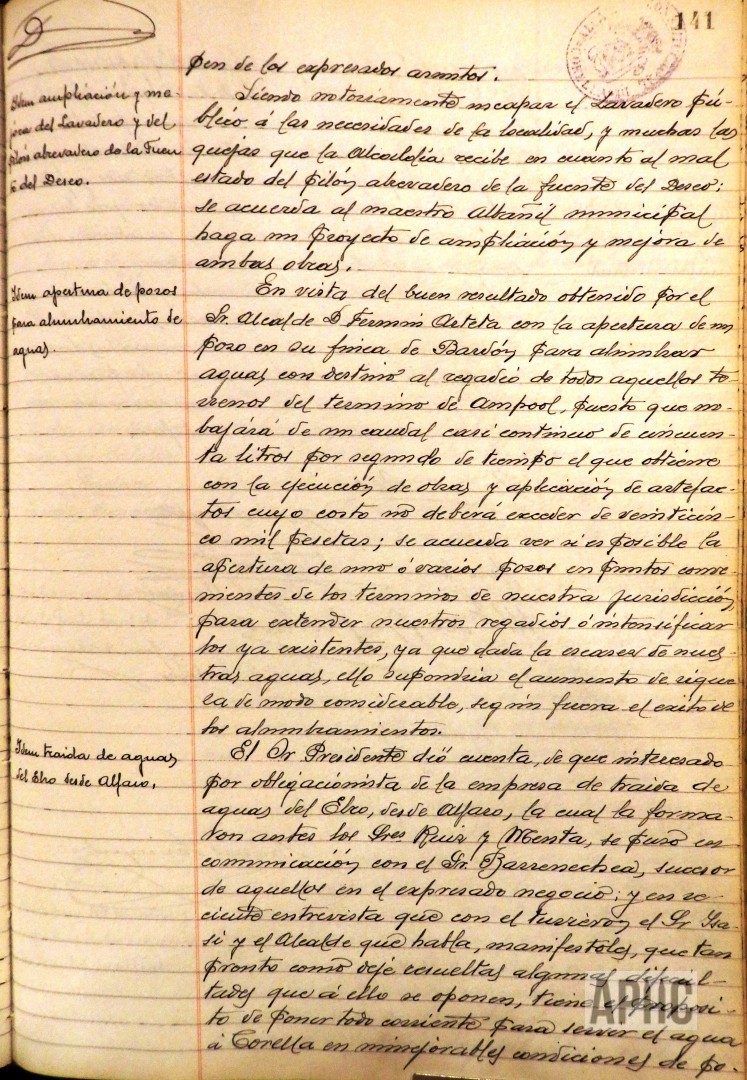 141
pen de los expresados asuntos.
Idem ampliación y me-
jora del Lavadero y del
pilón abrevadero de la Fuen-
te del Deseo.
Siendo notoriamente incapaz el Lavadero pú-
blico á las necesidades de la localidad, y muchas las
quejas que la Alcaldía recibe en cuanto al mal
estado del pilón abrevadero de la fuente del Deseo;
se acuerda al maestro Albañil municipal
haga un proyecto de ampliación y mejora de
ambas obras.
Idem apertura de pozos
para alumbramiento de
aguas.
En vista del buen resultado obtenido por el
Sr. Alcalde D Fermin Arteta con la apertura de un
pozo en su finca de Bardón para alumbrar
aguas con destino al regadío de todos aquellos te-
rrenos del termino de Ampool, puesto que no
bajará de un caudal casi continuo de cincuen-
ta litros por segundo de tiempo el que obtiene
con la ejecución de obras y aplicación de artefac-
tos cuyo costo no deberá exceder de veinticin-
co mil pesetas; se acuerda ver si es posible la
apertura de uno ó varios pozos en puntos conve-
nientes de los terminos de nuestra jurisdicción,
para extender nuestros regadios ó intensificar
los ya existentes, ya que dada la escasez de nues-
tras aguas, ello supondria el aumento de rique-
za de modo considerable, según fuera el exito de
los alumbramientos.
Idem traida de aguas
del Ebro desde Alfaro.
El Sr Presidente dió cuenta, de que interesado
por obligacionista de la empresa de traida de
aguas del Ebro, desde Alfaro, la cual la forma-
ron antes los Sres Ruiz y Menta, se puso en
comunicación con el Sr. Barrenechea, sucesor
de aquellos en el expresado negocio; y en re-
ciente entrevista que con el tuvieron el Sr Isa-
si y el Alcalde que habla, manifestoles, que tan
pronto como deje resueltas algunas dificul-
tades que á ello se oponen, tiene el proposi-
to de poner todo corriente para servir el agua
á Corella en minejorables condiciones de po-
APHC